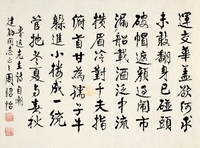 運交華盖欲何求
未敢翻身已碰頭
破帽遮顔過鬧市
漏船載酒泛中流
横眉冷對千夫指
俯首甘為孺子牛
躲進小樓成一統
管他冬夏与春秋
魯迅先生詩自嘲